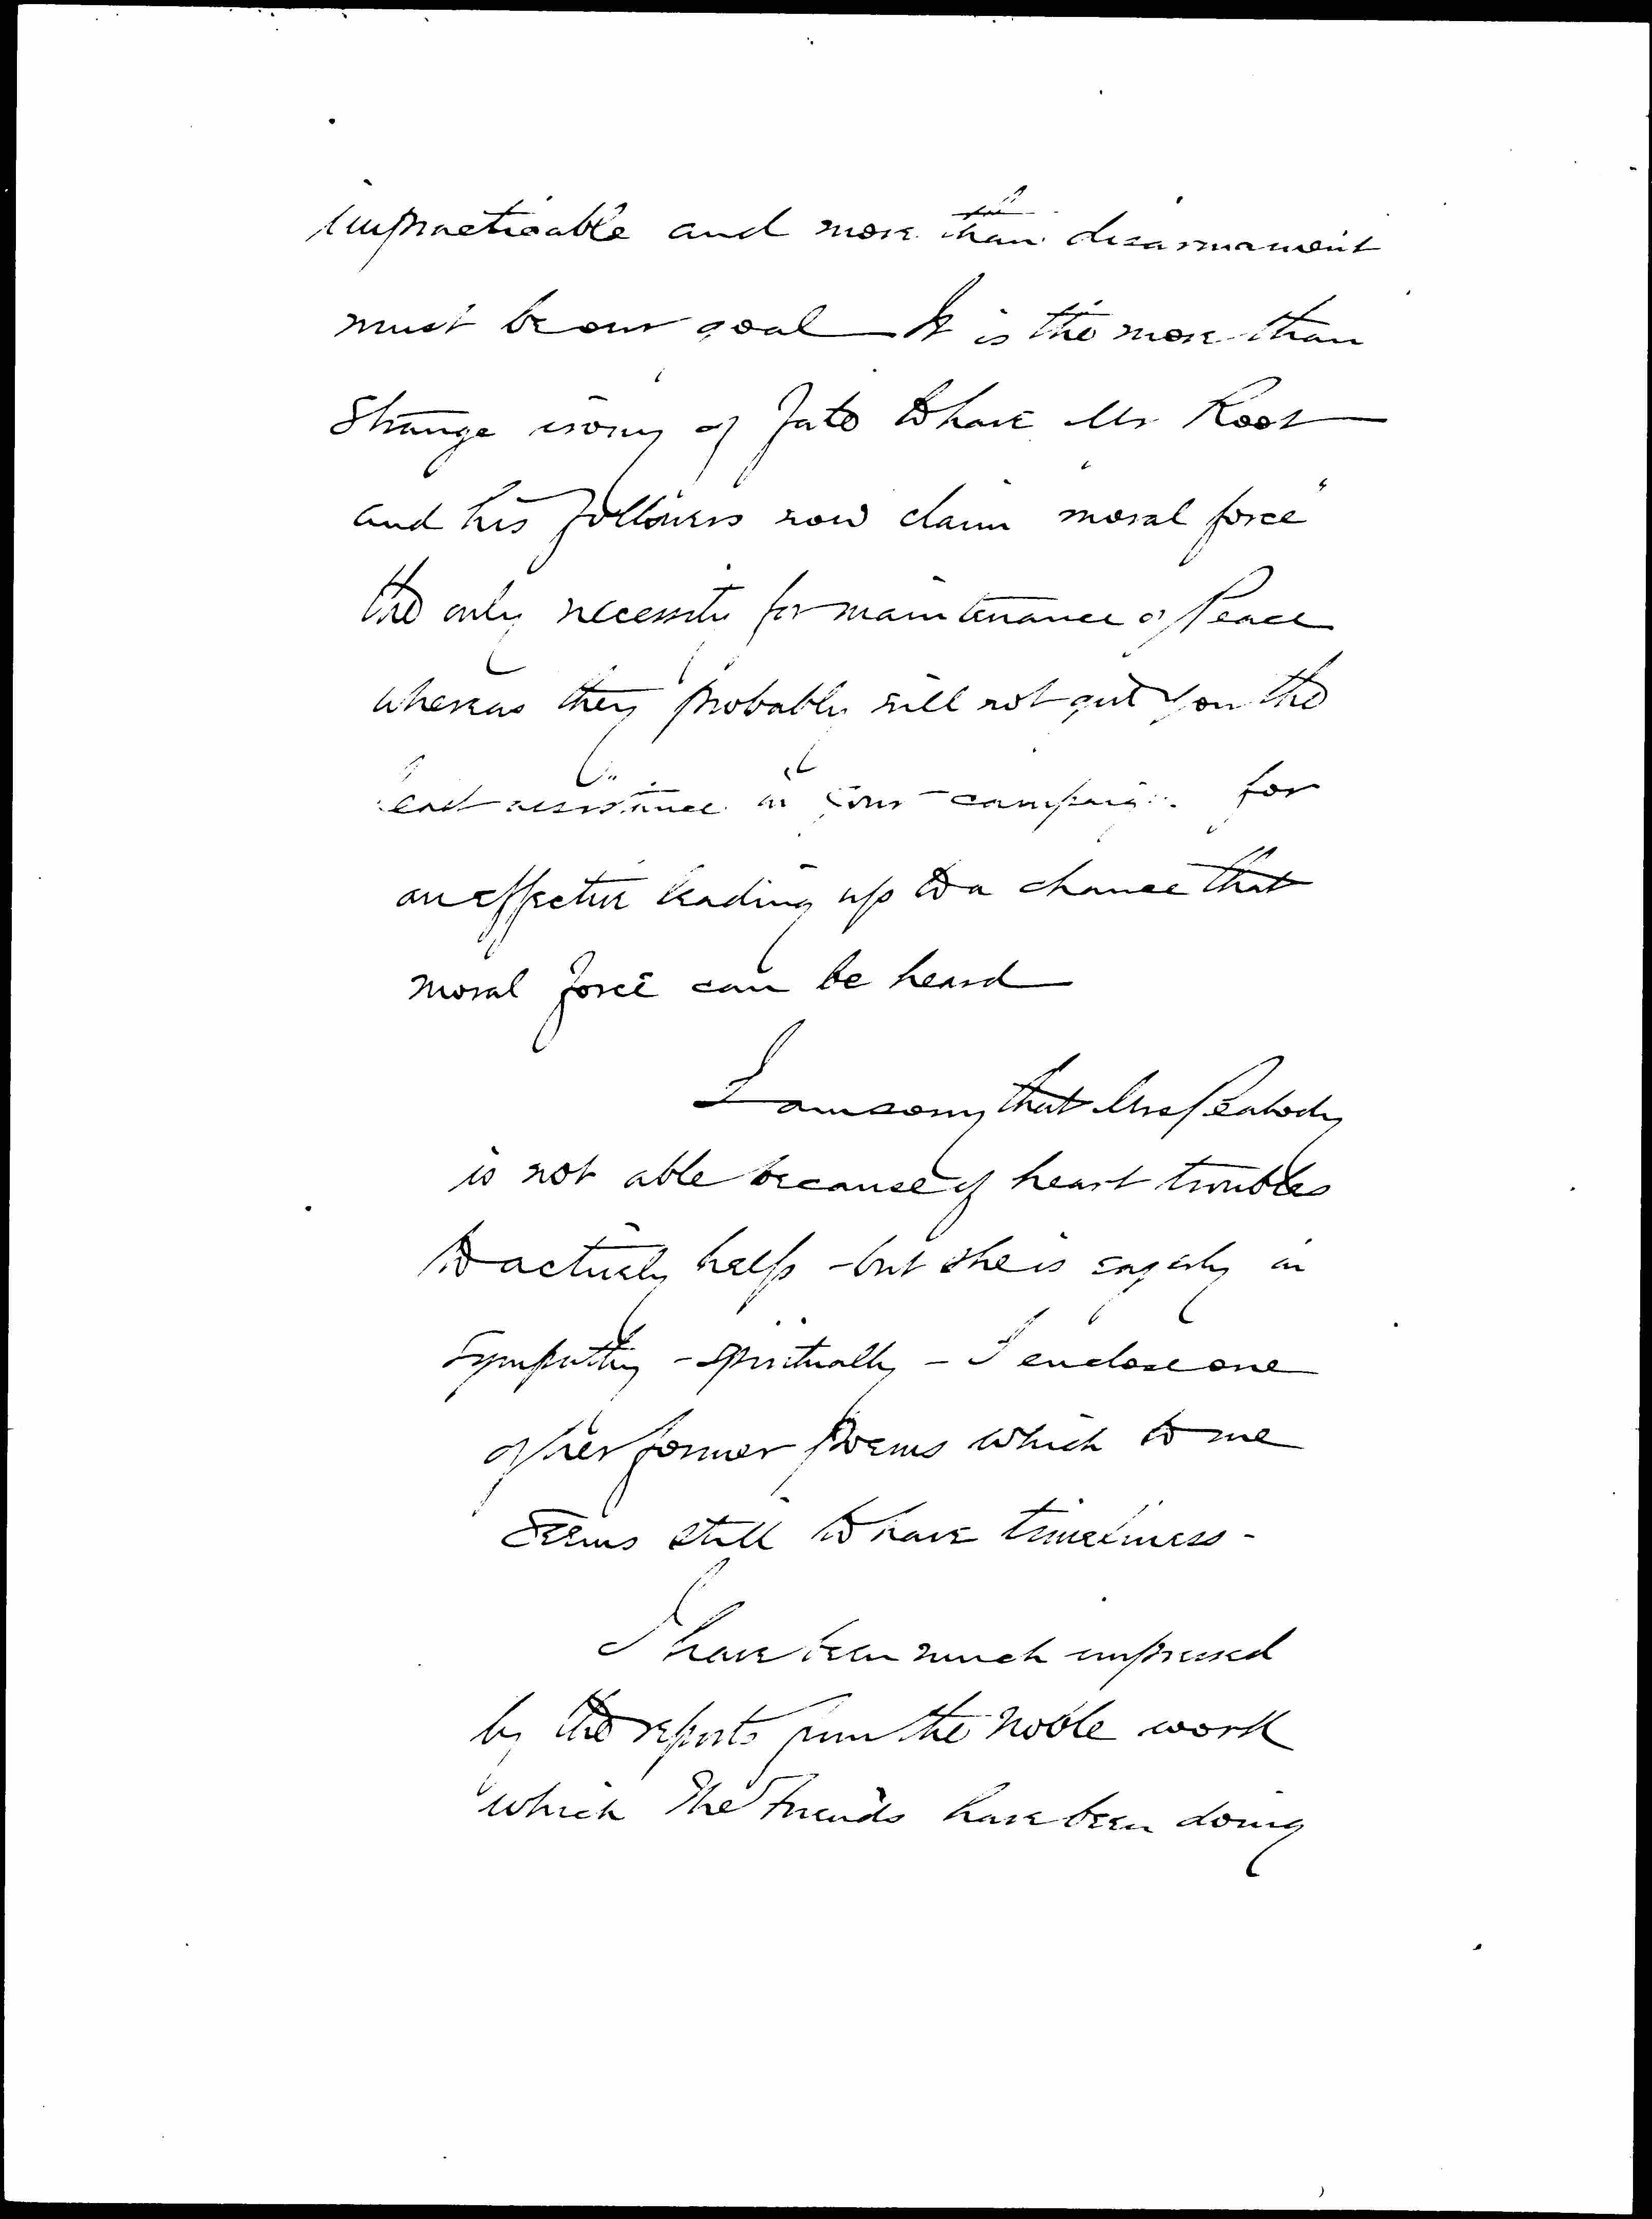 impracticable and more than disarmament
must be our goal — It is the more than
strange irony of Fate to have Mr Root
and his followers now claim "moral force"
the only necessity for maintenance of Peace
whereas they probably will not give you the
least assistance in your campaign for
an effective leading up to a chance that
moral force can be heard
I am sorry that Mrs Peabody
is not able because of heart troubles
to actively help - but she is eagerly in
sympathy - spiritually - I enclose one
of her former poems which to me
seems still to have timeliness -
I have been much impressed
by the reports from the noble work
which The Friends have been doing